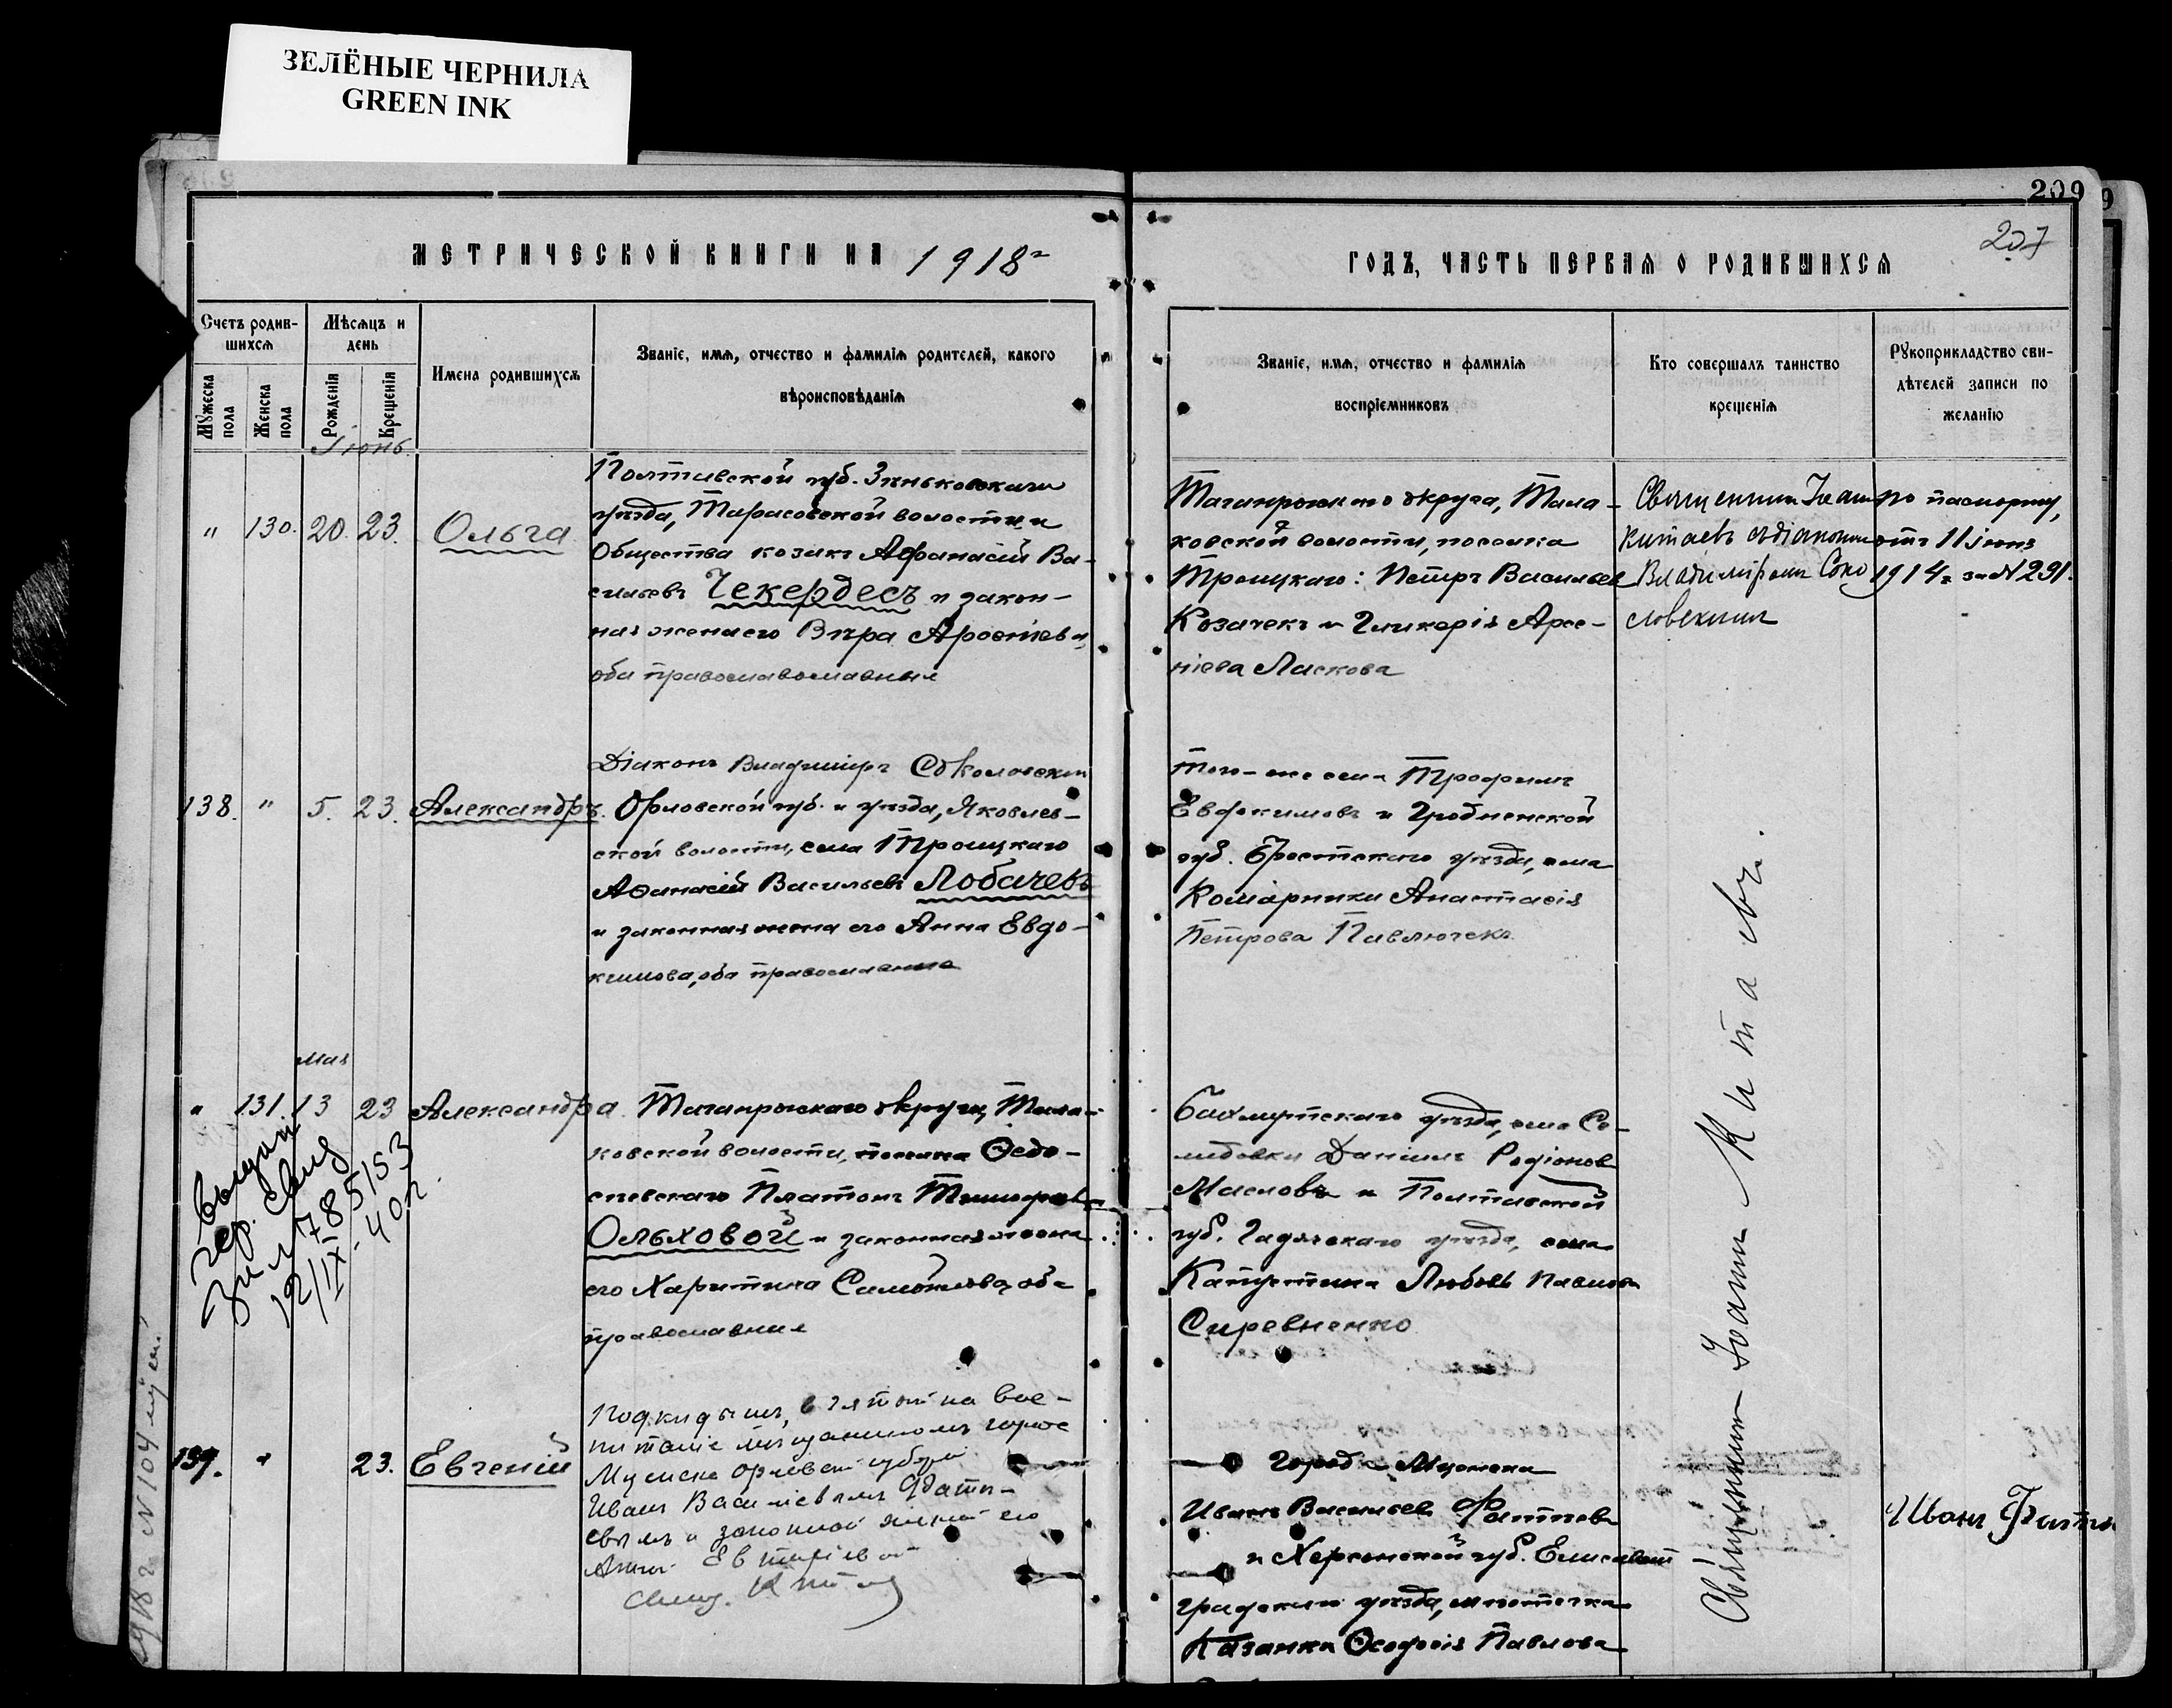 ЗЕЛЁНЫЕ ЧЕРНИЛА
GREEN INK
209
207
МЕТРИЧЕСКОЙ КНИГИ НА 1918 г
ГОДЪ, ЧАСТЬ ПЕРВАЯ О РОДИВШИХСЯ
Счетъ родив-
шихся
Мѣсяцъ и
день
Имена родившихся
Званіе, имя, отчество и фамилія родителей, какого
вѣроисповѣданія
Мужеска пола
Женска пола
Рожденія
Крещенія
Званіе, имя, отчество и фамилія
воспріемниковъ
Кто совершалъ таинство
крещенія
Рукоприкладство сви-
дѣтелей записи по
желанію
Іюнь
" 130. 20. 23. Ольга
Полтавской губ. Зиньковскаго
уѣзда, Тарасовской волости и
Общества козакъ Афанасій Ва-
сильевъ Чекердесъ и закон-
ная жена его Вѣра
оба православославныя
Таганрогскаго округа, Тала-
ковской волости, поселка
Троицкаго: Петръ Васильев
Козачекъ и Гликерія Арсе-
ніева Ласкова
Священникъ Іоаннъ
Китаевъ съ діакономъ
Владиміромъ Соко
ловскимъ
по паспорту,
отъ 11 іюня
1914 г за № 291.
138. " 5. 23. Александръ.
Діаконъ Владиміръ Соколовскій
Орловской губ. и уѣзда, Яковлев-
ской волости, села Троицкаго
Афанасій Васильевъ Лобачевъ
и законная жена его Анна Евдо-
кимова, оба православные
Того-же села Трофимъ
Евдокимовъ и Гродненской
губ. Брестскаго уѣзда, села
Комарники Анастасія
Петрова Павлючекъ
мая
" 131. 13 23 Александра
Таганрогскаго округа, Тала-
ковской волости, поселка Ѳедо-
сѣевскаго Платонъ
Ольховой и законная жена
его Харитина Самойлова, оба
православныя
Бахмутскаго уѣзда, села Се-
лидовки Даніилъ Родіонов
Масловъ и Полтавской
губ. Гадячскаго уѣзда, села
Капустина Любовь Павлова
Сиревненко
выдан
гер. свид
785153
12/IX-40 г.
139. " 23. Евгеній
Подкидышъ, взятый на вос-
питаніе мѣщаниномъ города
Мценска Орловской губерніи
Иваномъ Васильевымъ
и законной женой его
Анной
Свящ. Китаев
Города Мценска
Иванъ Васильевъ
и Херсонской губ. Елисавет
градскаго уѣзда, мѣстечка
Казанки Ѳеодосія Павлова
Священникъ Іоаннъ Китаевъ.
Иванъ
1918 г № 104